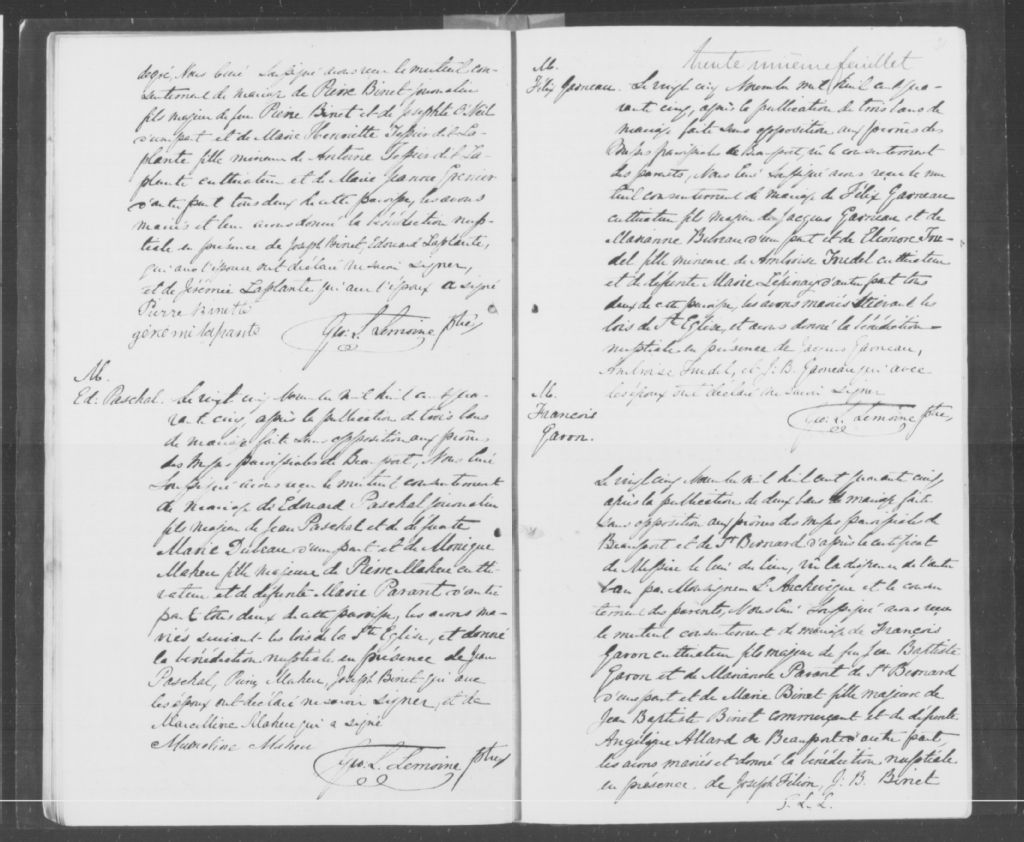 degré, Nous Curé Soussigné avons reçu le mutuel con-
sentement de mariage de Pierre Binet journalier
fils majeur de feu Pierre Binet et de Josephte O'Neil
d'une part et de Marie Henriette Tessier dit La-
plante fille mineure de Antoine Tessier dit La-
plante cultivateur et de Marie Jeanne Grenier
d'autre part tous deux de cette paroisse, les avons
mariés et leur avons donné la bénédiction nup-
tiale en présence de Joseph Binet, Edouard Laplante,
qui avec l'épouse ont déclaré ne savoir signer,
et de Jérémie Laplante qui avec l'époux a signé
Pierre Binette
géremi laplante
Geo. L. Lemoine Ptre
M.
Ed. Paschal. Le vingt cinq Novembre mil huit cent qua-
rante cinq, après la publication de trois bans
de mariage faite sans opposition aux prônes
des Messes paroissiales de Beauport, Nous Curé
Soussigné avons reçu le mutuel consentement
de mariage de Edouard Paschal journalier
fils majeur de Jean Paschal et de défunte
Marie Dubeau d'une part et de Monique
Maheu fille majeure de Pierre Maheu culti-
vateur et de défunte Marie Parant d'autre
part tous deux de cette paroisse, les avons ma-
riés suivant les lois de la Ste Eglise, et donné
la bénédiction nuptiale en présence de Jean
Paschal, Pierre Maheu, Joseph Binet qui avec
les époux ont déclaré ne savoir signer, et de
Marcelline Maheu qui a signé
Marceline Maheu
Geo. L. Lemoine Ptre
trente unième feuillet
M.
Félix Garneau. Le vingt cinq Novembre mil huit cent qua-
rante cinq, après la publication de trois bans de
mariage faite sans opposition aux prônes des
Messes paroissiales de Beauport, vu le consentement
des parents, Nous Curé Soussigné avons reçu le mu-
tuel consentement de mariage de Félix Garneau
cultivateur fils majeur de Jacques Garneau et de
Marianne Bureau d'une part et de Eléonore Tru-
del fille mineure de Ambroise Trudel cultivateur
et de défunte Marie Lépinay d'autre part tous
deux de cette paroisse, les avons mariés suivant les
lois de Ste Eglise, et avons donné la bénédiction
nuptiale en présence de Jacques Garneau,
Ambroise Trudel, et J. B. Garneau qui avec
les époux ont déclaré ne savoir signer
Geo. L. Lemoine Ptre
M.
François
Garon.
Le vingt cinq Novembre mil huit cent quarante cinq
après la publication de deux bans de mariage faite
sans opposition aux prônes des messes paroissiales de
Beauport et de St Bernard d'après le certificat
de Messire le Curé du lieu, vu la dispense de l'autre
ban par Monseigneur L'Archevêque et le consen-
tement des parents, Nous Curé Soussigné avons reçu
le mutuel consentement de mariage de François
Garon cultivateur fils majeur de feu Jean Baptiste
Garon et de Marianne Parant de St Bernard
d'une part et de Marie Binet fille majeure de
Jean Baptiste Binet commerçant et de défunte
Angélique Allard de Beauport d'autre part,
les avons mariés et donné la bénédiction nuptiale
en présence de Joseph Filion, J. B. Binet
G. L. L.